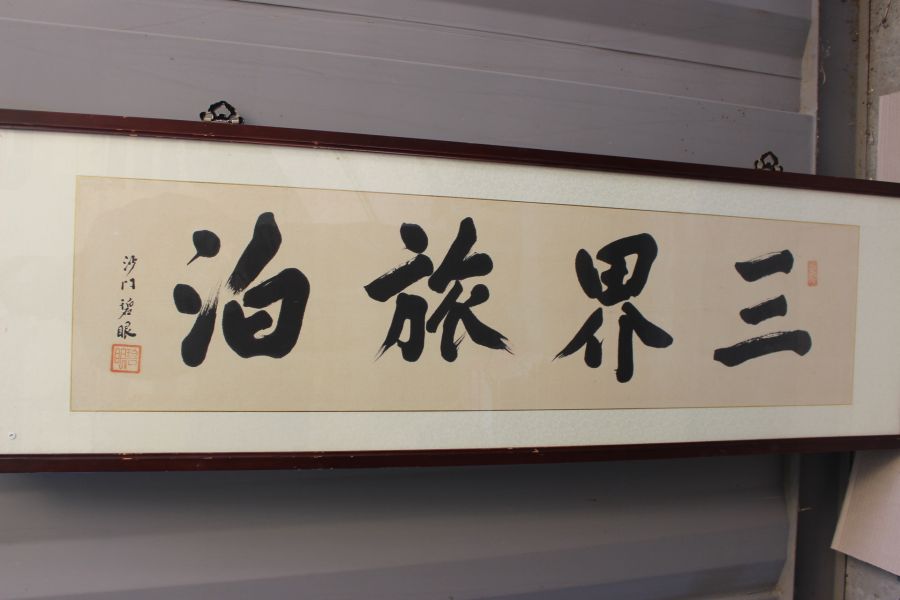 三界旅泊
沙門碧眼